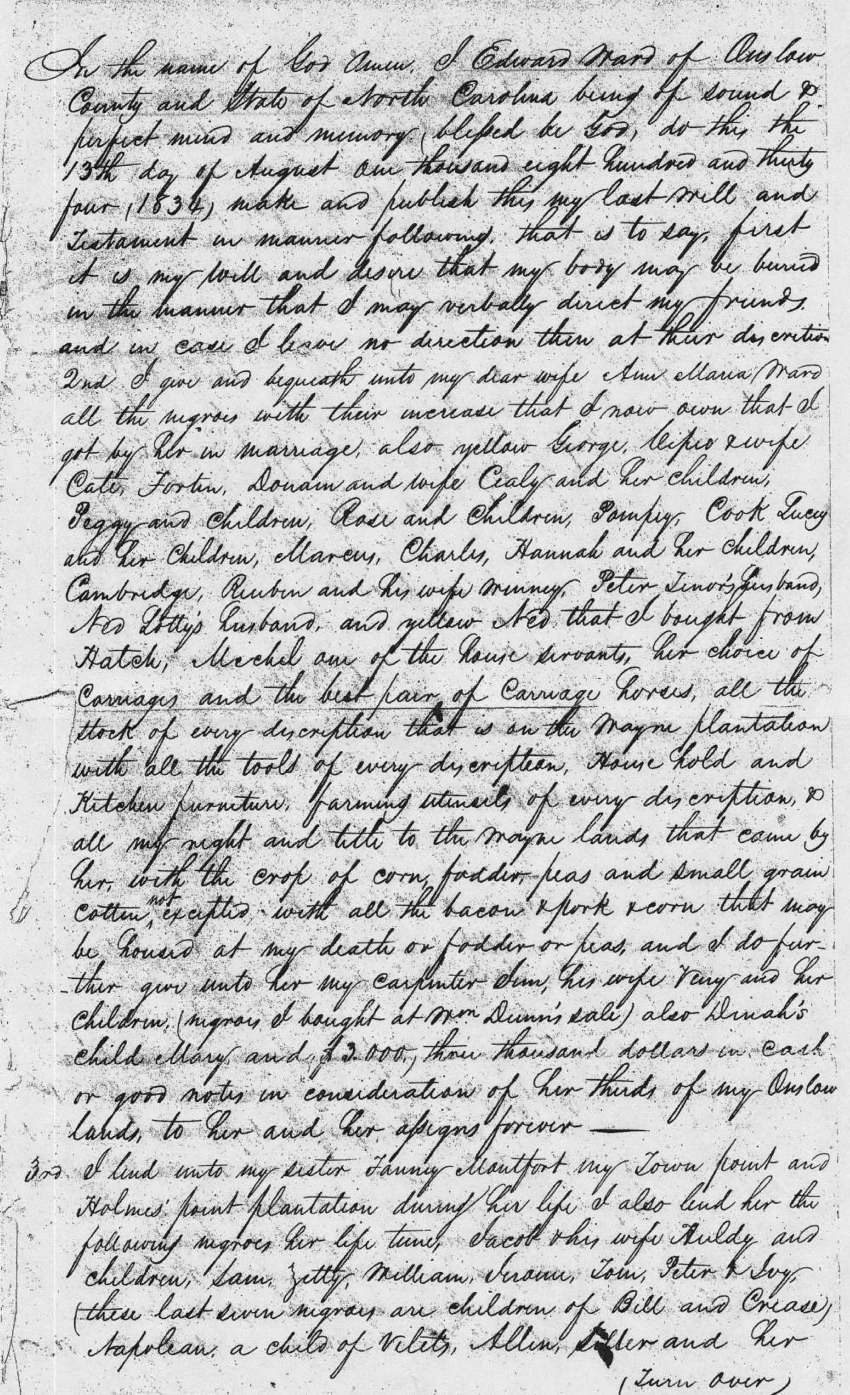 In the name of God Amen. I Edward Ward of Onslow
County and State of North Carolina being of sound &
perfect mind and memory (blessed be God, do this the
13th day of August one thousand eight hundred and thirty
four, (1834) make and publish this my last Will and
Testament in manner following, that is to say, first
it is my Will and desire that my body may be buried
in the manner that I may verbally direct my friends
and in case I leave no direction then at their discretion
2nd I give and bequeath unto my dear wife Ann Maria Ward
all the negroes with their increase that I now own that I
got by her in marriage, also yellow George, Cipio & wife
Cate, Fortin, Douam and wife Cealy and her children,
Peggy and children, Rose and Children, Pompey, Cook Lucey
and her Children, Marcus, Charles, Hannah and her children,
Cambridge, Reuben and his wife Winney, Peter Tenor's husband,
Ned Lotty's husband, and yellow Ned that I bought from
Hatch, Mechel one of the house servants, her choice of
Carriages and the best pair of Carriage horses, all the
stock of every discription that is on the Wayne plantation
with all the tools of every discription, House hold and
Kitchen furniture, farming utensils of every discription, &
all my right and title to the Wayne lands that came by
her, with the crop of corn, fodder, peas and small grain
Cotten not excepted with all the bacon & pork & corn that may
be housed at my death or fodder or peas, and I do fur-
-ther give unto her my carpenter Sim, his wife Veny and her
children, (negroes I bought at Wm Dunn's sale) also Dinah's
child Mary, and $3.000, three thousand dollars in cash
or good notes in consideration of her thirds of my Onslow
lands, to her and her assigns forever —
3rd I lend unto my sister Fanny Montfort my Town point and
Holmes' point plantation during her life I also lend her the
following negroes her life time, Jacob & his wife Huldy and
children, Sam, Zetty, William, Jerome, Tom, Peter & Ivy,
(these last seven negroes are children of Bill and Crease)
Napolean, a child of Velets, Allen, Siller and her
(Turn over)